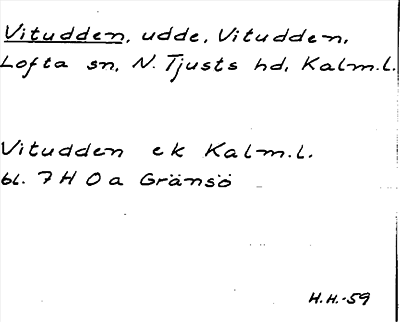 Vitudden, udde, Vitudden,
Lofta sn, N. Tjusts hd, Kalm.l.
Vitudden ek Kalm.l.
bl. 7 H 0 a Gränsö
H.H.-59